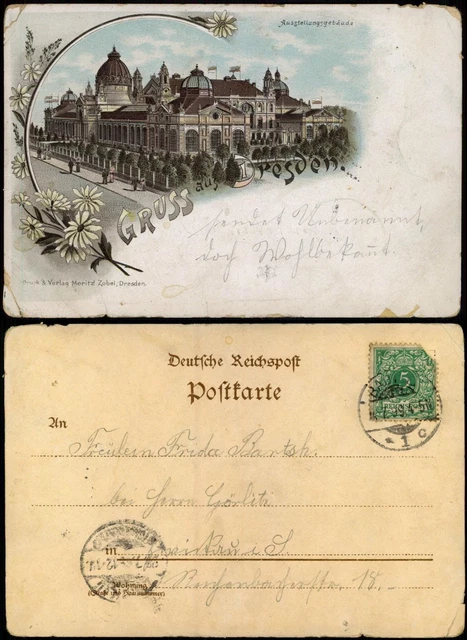 Ausstellungsgebäude
GRUSS aus Dresden.
sendet Unbenannt,
doch Wohlbekannt.
Druck & Verlag Moritz Zobel, Dresden.
Deutsche Reichspost
Postkarte
An
Fräulein Frida Bartsh.
bei Herrn Görlitz
in Zwickau i. S.
Wohnung
(Straße und Hausnummer)
Reichenbacherstr. 18.
5